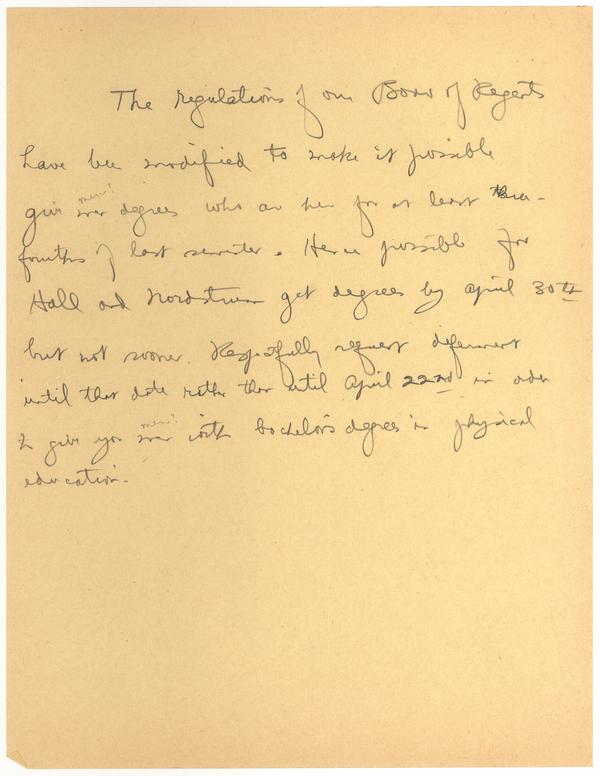 The regulations of our Board of Regents
have been modified to make it possible
men?
give men degrees who are here for at least three-
fourths of last semester. Hence possible for
Hall and Nordstrum get degrees by April 30th
but not sooner. Respectfully request deferment
until that date rather than until April 22nd in order
men?
to give you men with bachelor's degrees in physical
education.